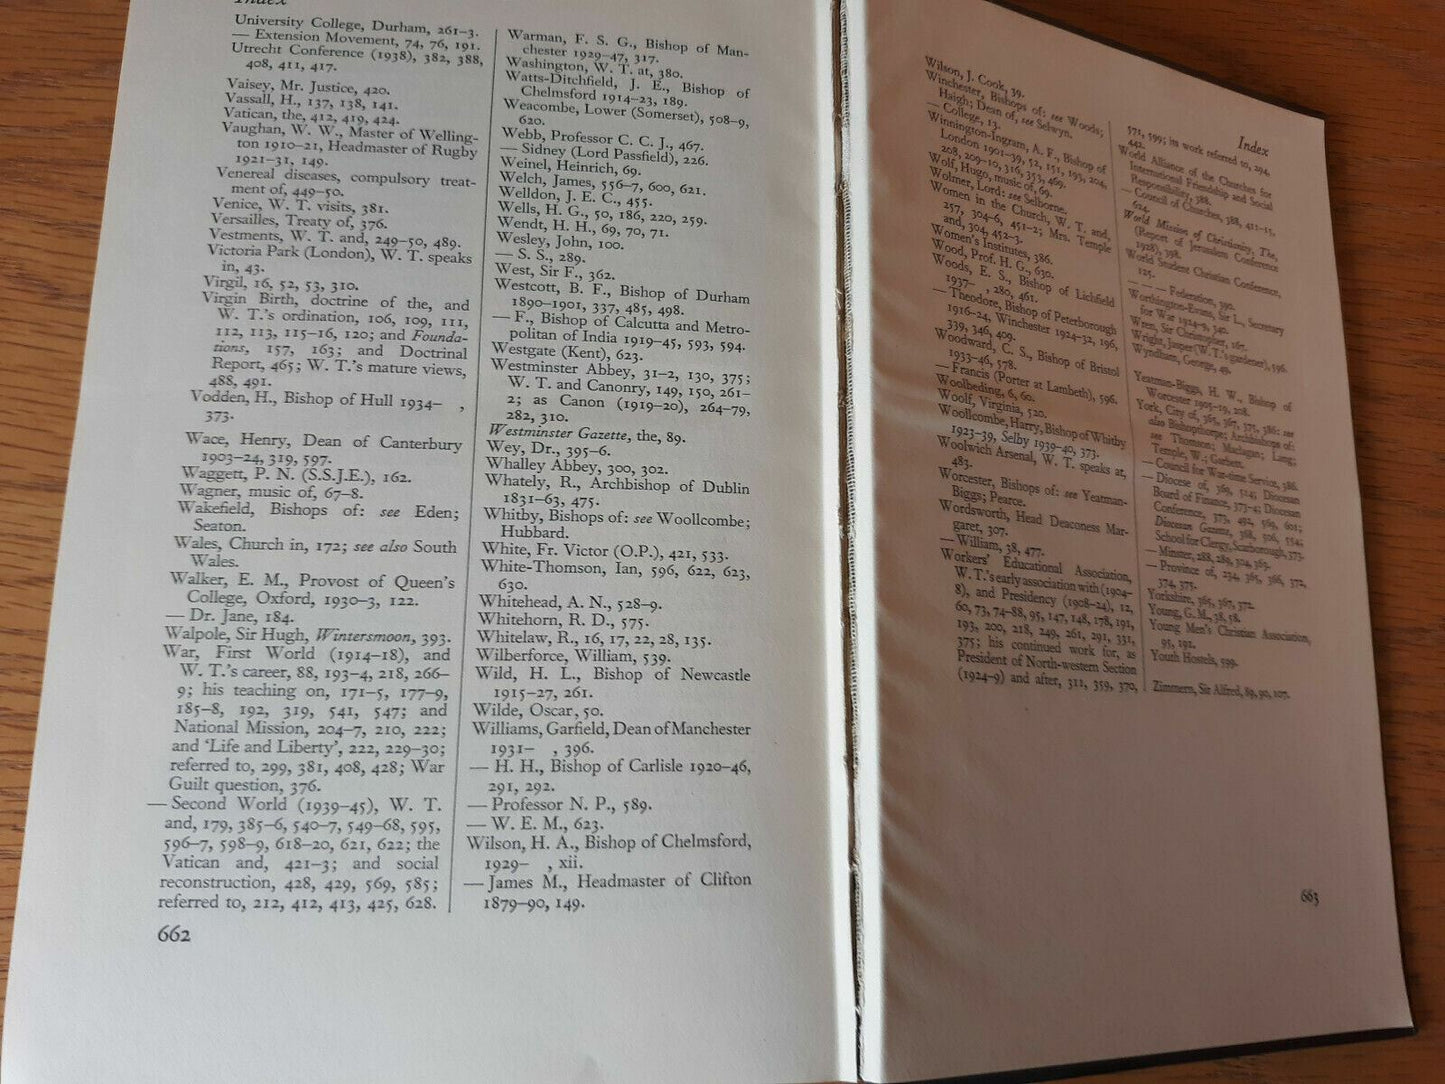 Index
University College, Durham, 261–3.
— Extension Movement, 74, 76, 191.
Utrecht Conference (1938), 382, 388,
408, 411, 417.
Vaisey, Mr. Justice, 420.
Vassall, H., 137, 138, 141.
Vatican, the, 412, 419, 424.
Vaughan, W. W., Master of Welling-
ton 1910–21, Headmaster of Rugby
1921–31, 149.
Venereal diseases, compulsory treat-
ment of, 449–50.
Venice, W. T. visits, 381.
Versailles, Treaty of, 376.
Vestments, W. T. and, 249–50, 489.
Victoria Park (London), W. T. speaks
in, 43.
Virgil, 16, 52, 53, 310.
Virgin Birth, doctrine of the, and
W. T.'s ordination, 106, 109, 111,
112, 113, 115–16, 120; and Founda-
tions, 157, 163; and Doctrinal
Report, 465; W. T.'s mature views,
488, 491.
Vodden, H., Bishop of Hull 1934– ,
373.
Wace, Henry, Dean of Canterbury
1903–24, 319, 597.
Waggett, P. N. (S.S.J.E.), 162.
Wagner, music of, 67–8.
Wakefield, Bishops of: see Eden;
Seaton.
Wales, Church in, 172; see also South
Wales.
Walker, E. M., Provost of Queen's
College, Oxford, 1930–3, 122.
— Dr. Jane, 184.
Walpole, Sir Hugh, Wintersmoon, 393.
War, First World (1914–18), and
W. T.'s career, 88, 193–4, 218, 266–
9; his teaching on, 171–5, 177–9,
185–8, 192, 319, 541, 547; and
National Mission, 204–7, 210, 222;
and 'Life and Liberty', 222, 229–30;
referred to, 299, 381, 408, 428; War
Guilt question, 376.
— Second World (1939–45), W. T.
and, 179, 385–6, 540–7, 549–68, 595,
596–7, 598–9, 618–20, 621, 622; the
Vatican and, 421–3; and social
reconstruction, 428, 429, 569, 585;
referred to, 212, 412, 413, 425, 628.
662
Warman, F. S. G., Bishop of Man-
chester 1929–47, 317.
Washington, W. T. at, 380.
Watts-Ditchfield, J. E., Bishop of
Chelmsford 1914–23, 189.
Weacombe, Lower (Somerset), 508–9,
620.
Webb, Professor C. C. J., 467.
— Sidney (Lord Passfield), 226.
Weinel, Heinrich, 69.
Welch, James, 556–7, 600, 621.
Welldon, J. E. C., 455.
Wells, H. G., 50, 186, 220, 259.
Wendt, H. H., 69, 70, 71.
Wesley, John, 100.
— S. S., 289.
West, Sir F., 362.
Westcott, B. F., Bishop of Durham
1890–1901, 337, 485, 498.
— F., Bishop of Calcutta and Metro-
politan of India 1919–45, 593, 594.
Westgate (Kent), 623.
Westminster Abbey, 31–2, 130, 375;
W. T. and Canonry, 149, 150, 261–
2; as Canon (1919–20), 264–79,
282, 310.
Westminster Gazette, the, 89.
Wey, Dr., 395–6.
Whalley Abbey, 300, 302.
Whately, R., Archbishop of Dublin
1831–63, 475.
Whitby, Bishops of: see Woollcombe;
Hubbard.
White, Fr. Victor (O.P.), 421, 533.
White-Thomson, Ian, 596, 622, 623,
630.
Whitehead, A. N., 528–9.
Whitehorn, R. D., 575.
Whitelaw, R., 16, 17, 22, 28, 135.
Wilberforce, William, 539.
Wild, H. L., Bishop of Newcastle
1915–27, 261.
Wilde, Oscar, 50.
Williams, Garfield, Dean of Manchester
1931– , 396.
— H. H., Bishop of Carlisle 1920–46,
291, 292.
— Professor N. P., 589.
— W. E. M., 623.
Wilson, H. A., Bishop of Chelmsford,
1929– , xii.
— James M., Headmaster of Clifton
1879–90, 149.
Wilson, J. Cook, 39.
Winchester, Bishops of: see Woods;
Haigh; Dean of, see Selwyn.
— College, 13.
Winnington-Ingram, A. F., Bishop of
London 1901–39, 52, 151, 193, 204,
208, 209–10, 316, 353, 469.
Wolf, Hugo, music of, 69.
Wolmer, Lord: see Selborne.
Women in the Church, W. T. and,
257, 304–6, 451–2; Mrs. Temple
and, 304, 452–3.
Women's Institutes, 386.
Wood, Prof. H. G., 630.
Woods, E. S., Bishop of Lichfield
1937– , 280, 461.
— Theodore, Bishop of Peterborough
1916–24, Winchester 1924–32, 196,
339, 346, 409.
Woodward, C. S., Bishop of Bristol
1933–46, 578.
— Francis (Porter at Lambeth), 596.
Woolbeding, 6, 60.
Woolf, Virginia, 520.
Woollcombe, Harry, Bishop of Whitby
1923–39, Selby 1939–40, 373.
Woolwich Arsenal, W. T. speaks at,
483.
Worcester, Bishops of: see Yeatman-
Biggs; Pearce.
Wordsworth, Head Deaconess Mar-
garet, 307.
— William, 38, 477.
Workers' Educational Association,
W. T.'s early association with (1904–
8), and Presidency (1908–24), 12,
60, 73, 74–88, 95, 147, 148, 178, 191,
193, 200, 218, 249, 261, 291, 331,
375; his continued work for, as
President of North-western Section
(1924–9) and after, 311, 359, 370,
Index
571, 599; its work referred to, 294,
442.
World Alliance of the Churches for
International Friendship and Social
Responsibility, 388.
— Council of Churches, 388, 411–15,
624.
World Mission of Christianity, The,
(Report of Jerusalem Conference
1928), 398.
World Student Christian Conference,
125.
— — — Federation, 390.
Worthington-Evans, Sir L., Secretary
for War 1924–9, 340.
Wren, Sir Christopher, 167.
Wright, Jasper (W. T.'s gardener), 596.
Wyndham, George, 49.
Yeatman-Biggs, H. W., Bishop of
Worcester 1905–19, 208.
York, City of, 365, 367, 375, 386: see
also Bishopthorpe; Archbishops of:
see Thomson; Maclagan; Lang;
Temple, W.; Garbett.
— Council for War-time Service, 386.
— Diocese of, 369, 514; Diocesan
Board of Finance, 373–4; Diocesan
Conference, 373, 492, 569, 601;
Diocesan Gazette, 368, 506, 554;
School for Clergy, Scarborough, 373.
— Minster, 288, 289, 304, 363.
— Province of, 234, 365, 366, 372,
374, 375.
Yorkshire, 365, 367, 372.
Young, G. M., 38, 58.
Young Men's Christian Association,
95, 192.
Youth Hostels, 599.
Zimmern, Sir Alfred, 89, 90, 107.
663